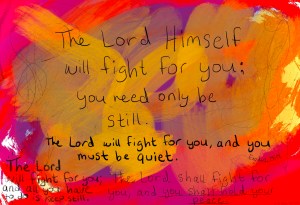 The Lord Himself
will fight for you;
you need only be
still.
The Lord will fight for you, and you
must be quiet.
The Lord
will fight for you;
and all you have
to do is keep still.
The Lord shall fight for
you, and you shall hold your
peace.